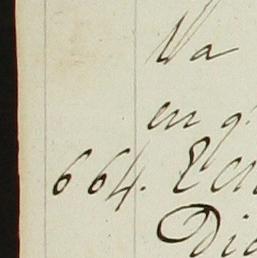 Va
en g
664. Ecn
Dic